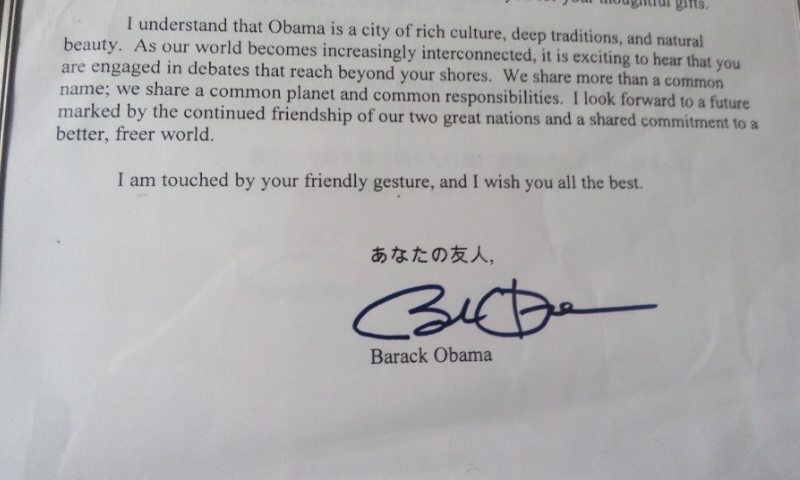 your thoughtful gifts.
I understand that Obama is a city of rich culture, deep traditions, and natural
beauty. As our world becomes increasingly interconnected, it is exciting to hear that you
are engaged in debates that reach beyond your shores. We share more than a common
name; we share a common planet and common responsibilities. I look forward to a future
marked by the continued friendship of our two great nations and a shared commitment to a
better, freer world.
I am touched by your friendly gesture, and I wish you all the best.
あなたの友人,
Barack Obama